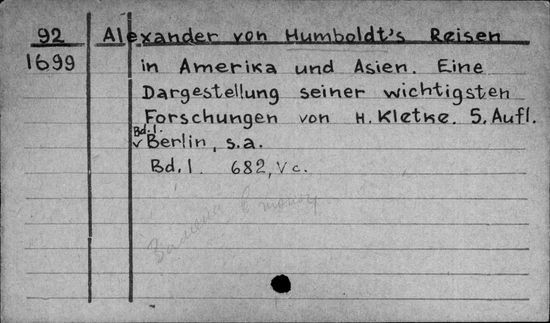 92 Alexander von Humboldt's Reisen
1699 in Amerika und Asien. Eine
Dargestellung seiner wichtigsten
Forschungen von H. Kletke. 5. Aufl.
Bd. I.
v Berlin, s.a.
Bd. I. 682, V c.